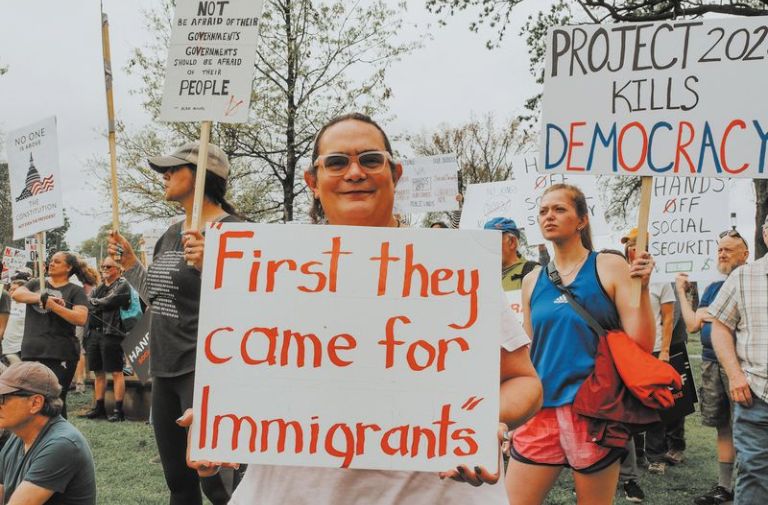 NOT
BE AFRAID OF THEIR
GOVERNMENTS
GOVERNMENTS
SHOULD BE AFRAID
OF THEIR
PEOPLE
PROJECT 202
KILLS
DEMOCRACY
NO ONE
IS ABOVE
THE
CONSTITUTION
"First they
came for
Immigrants"
HANDS
OFF
SOCIAL
SECURITY